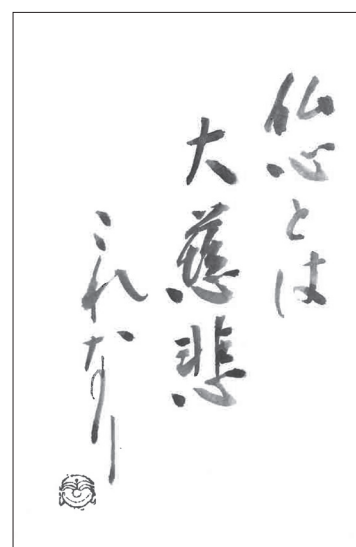 仏心とは
大慈悲
これなり